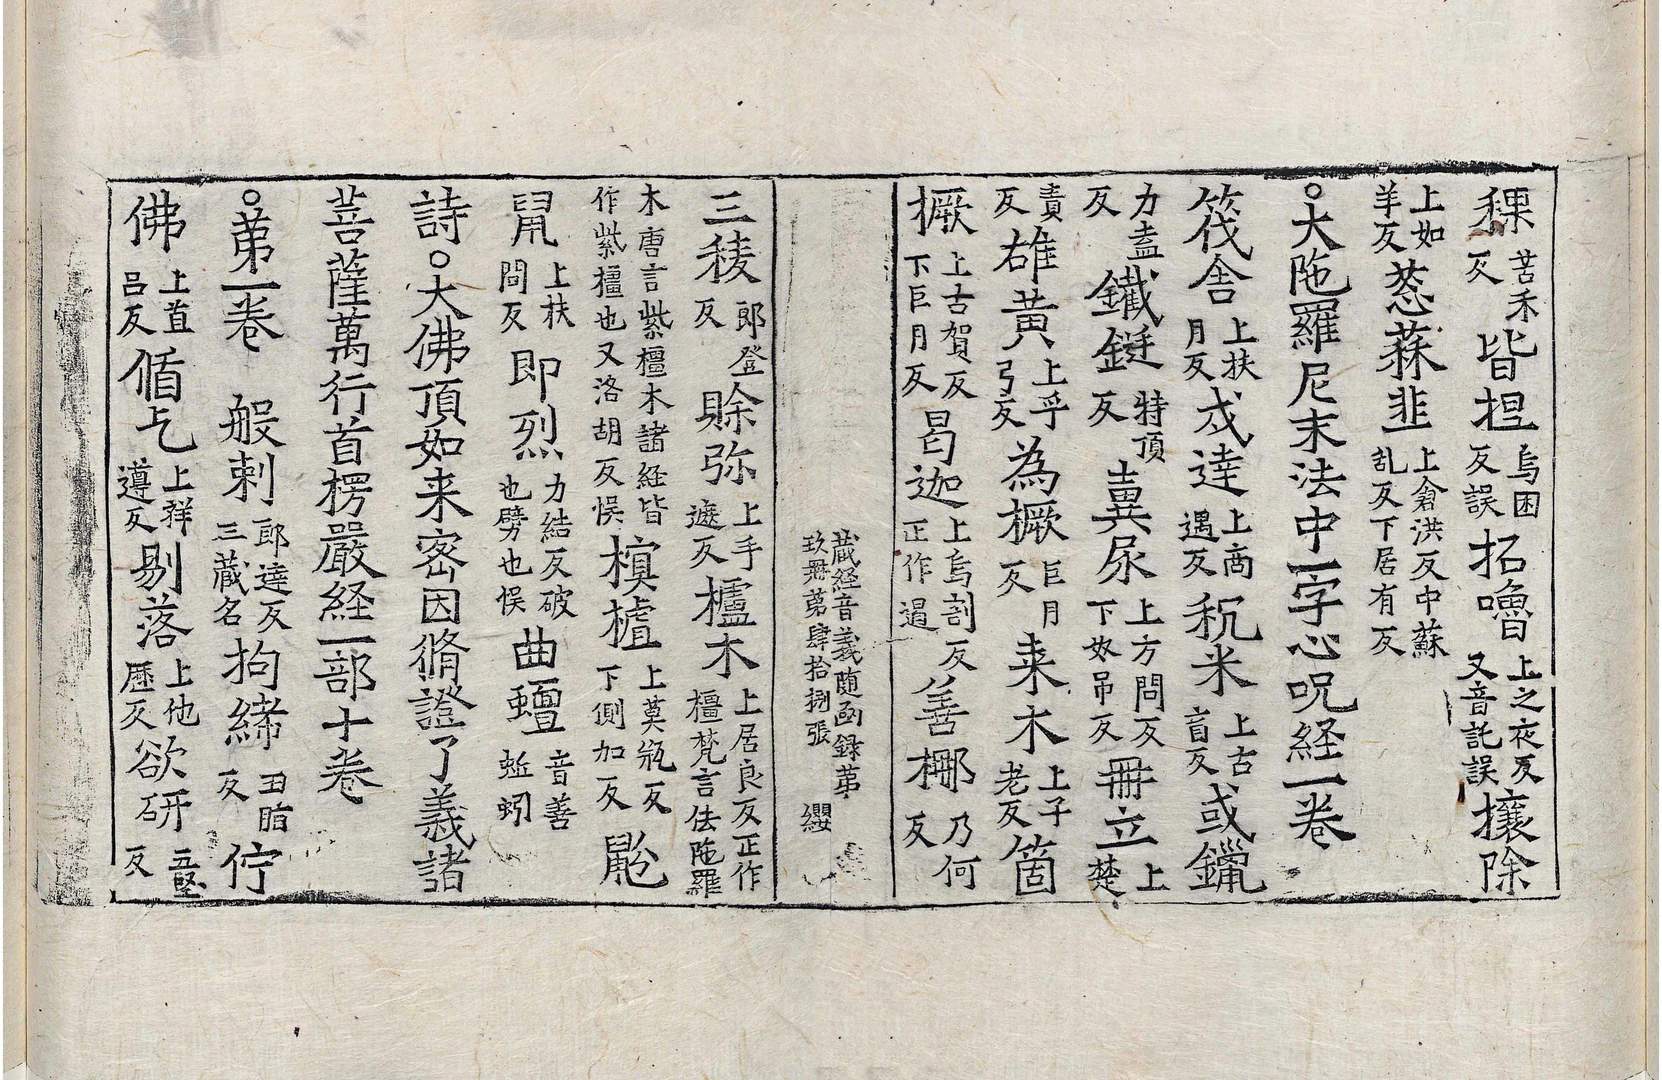 稞苦禾反皆担烏困反誤拓嚕上之夜反又音託誤攘除
上如羊反葱蒜韭上倉洪反中蘇乱反下居有反
○大陁羅尼末法中一字心呪経一卷
筏舍上扶月反戍達上商遇反秔米上古盲反或鑞
力盍反鐵鋌特頂反糞尿上方問反下奴吊反冊立上楚
責反雄黃上乎弓反為橛巨月反棗木上子老反箇
橛上古賀反下巨月反曷迦上烏割反正作遏善梛乃何反
蔵経音義随函録苐玖冊苐肆拾捌張 纓
三稜郎登反賖弥上手遮反櫨木上居良反正作橿梵言佉陁羅
木唐言紫橿木諸経皆作紫橿也又洛胡反悮榠樝上莫瓶反下側加反鼢
鼠上扶問反即烈力結反破也劈也悮曲蟺音善蚯蚓
詩○大佛頂如来宻因脩證了義諸
菩薩萬行首楞嚴経一部十卷
○苐一卷 般剌郎達反三藏名拘絺丑脂反佇
佛上直呂反循乞上祥遵反剔落上他歷反欲研五堅反